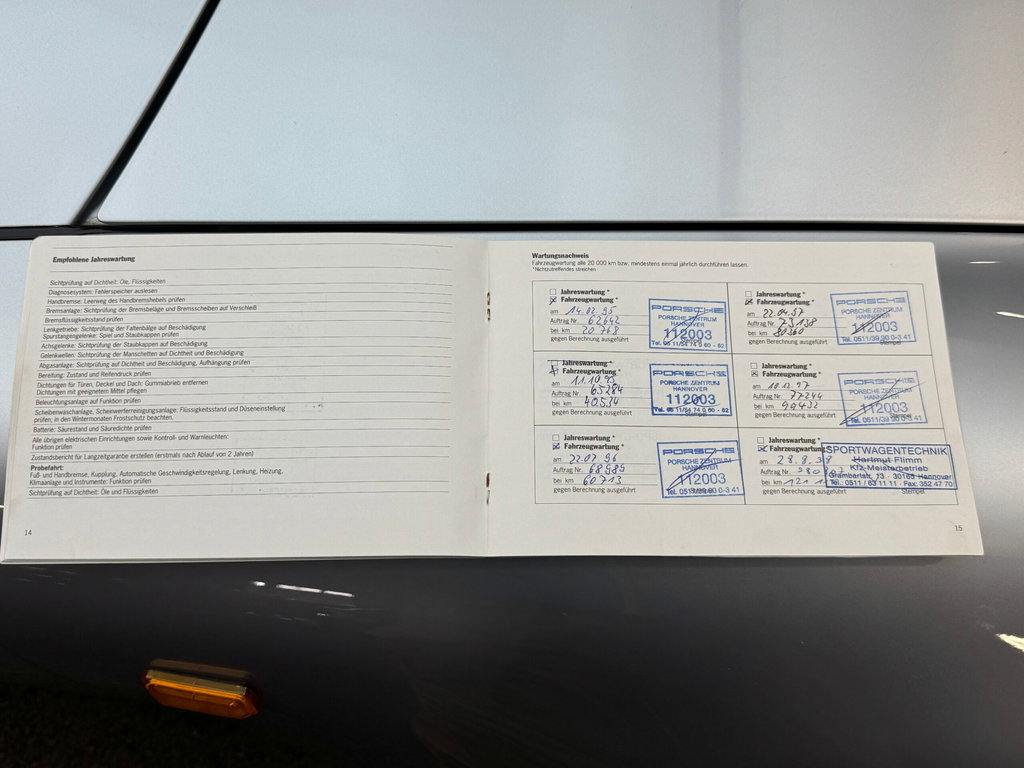 Empfohlene Jahreswartung
Sichtprüfung auf Dichtheit: Öle, Flüssigkeiten
Diagnosesystem: Fehlerspeicher auslesen
Handbremse: Leerweg des Handbremshebels prüfen
Bremsanlage: Sichtprüfung der Bremsbeläge und Bremsscheiben auf Verschleiß
Bremsflüssigkeitsstand prüfen
Lenkgetriebe: Sichtprüfung der Faltenbälge auf Beschädigung
Spurstangengelenke: Spiel und Staubkappen prüfen
Achsgelenke: Sichtprüfung der Staubkappen auf Beschädigung
Gelenkwellen: Sichtprüfung der Manschetten auf Dichtheit und Beschädigung
Abgasanlage: Sichtprüfung auf Dichtheit und Beschädigung, Aufhängung prüfen
Bereifung: Zustand und Reifendruck prüfen
Dichtungen für Türen, Deckel und Dach: Gummiabrieb entfernen
Dichtungen mit geeignetem Mittel pflegen
Beleuchtungsanlage auf Funktion prüfen
Scheibenwaschanlage, Scheinwerferreinigungsanlage: Flüssigkeitsstand und Düseneinstellung
prüfen; in den Wintermonaten Frostschutz beachten.
Batterie: Säurestand und Säuredichte prüfen
Alle übrigen elektrischen Einrichtungen sowie Kontroll- und Warnleuchten:
Funktion prüfen
Zustandsbericht für Langzeitgarantie erstellen (erstmals nach Ablauf von 2 Jahren)
Probefahrt:
Fuß- und Handbremse, Kupplung, Automatische Geschwindigkeitsregelung, Lenkung, Heizung,
Klimaanlage und Instrumente: Funktion prüfen
Sichtprüfung auf Dichtheit: Öle und Flüssigkeiten
14
Wartungsnachweis
Fahrzeugwartung alle 20 000 km bzw. mindestens einmal jährlich durchführen lassen.
*Nichtzutreffendes streichen
Jahreswartung *
Fahrzeugwartung *
am 14.02.95
Auftrag Nr. 62642
bei km 20 768
gegen Berechnung ausgeführt
PORSCHE
PORSCHE ZENTRUM
HANNOVER
112003
Tel. 05 11/54 74 0 60 - 62
Jahreswartung *
Fahrzeugwartung *
am 11.10.95
Auftrag Nr. 65284
bei km 40.534
gegen Berechnung ausgeführt
PORSCHE
PORSCHE ZENTRUM
HANNOVER
112003
Tel. 05 11/54 74 0 60 - 62
Jahreswartung *
Fahrzeugwartung *
am 22.07.96
Auftrag Nr. 68985
bei km 60713
gegen Berechnung ausgeführt
PORSCHE
PORSCHE ZENTRUM
HANNOVER
112003
Tel. 0511/39 90 0-3 41
Jahreswartung *
Fahrzeugwartung *
am 22.04.97
Auftrag Nr. 73138
bei km 80360
gegen Berechnung ausgeführt
PORSCHE
PORSCHE ZENTRUM
HANNOVER
112003
Tel. 0511/39 90 0-3 41
Stempel
Jahreswartung *
Fahrzeugwartung *
am 10.12.97
Auftrag Nr. 77244
bei km 99432
gegen Berechnung ausgeführt
PORSCHE
PORSCHE ZENTRUM
HANNOVER
112003
Tel. 0511/39 90 0-3 41
Jahreswartung *
Fahrzeugwartung *
am 28.9.98
Auftrag Nr.
bei km
gegen Berechnung ausgeführt
SPORTWAGENTECHNIK
Hartmut Flimm
Kfz-Meisterbetrieb
Grambartstr. 13 · 30165 Hannover
Tel. 0511 / 63 11 11 · Fax: 352 47 70
Stempel
15